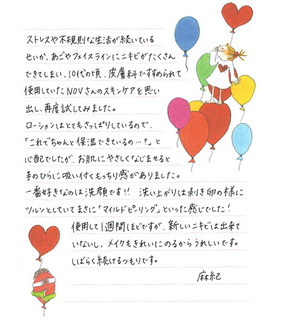 ストレスや不規則な生活が続いている
せいか、あごやフェイスラインにニキビがたくさん
できてしまい、10代の頃、皮膚科ですすめられて
使用していたNOVさんのスキンケアを思い
出し、再度試してみました。
ローションはとてもさっぱりしているので、
「これでちゃんと保湿できているの…?」と
心配でしたが、お肌にやさしくなじませると
手のひらに吸い付くもっちり感がありました。
一番好きなのは洗顔です!! 洗い上がりは剥き卵の様に
ツルンとしていてまさに"マイルドピーリング"といった感じでした!
使用して1週間ほどですが、新しいニキビは出来て
いないし、メイクもきれいにのるからうれしいです。
しばらく続けるつもりです。
麻紀